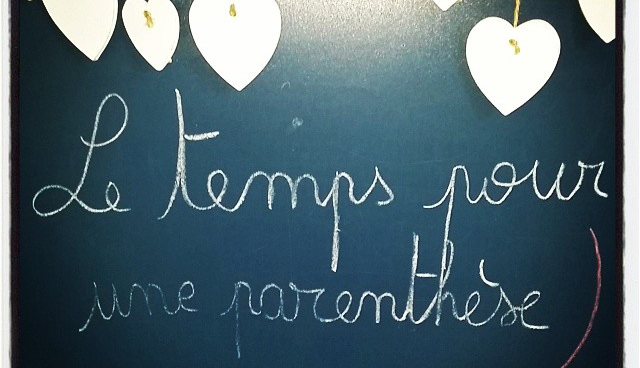 Le temps pour
une parenthèse )